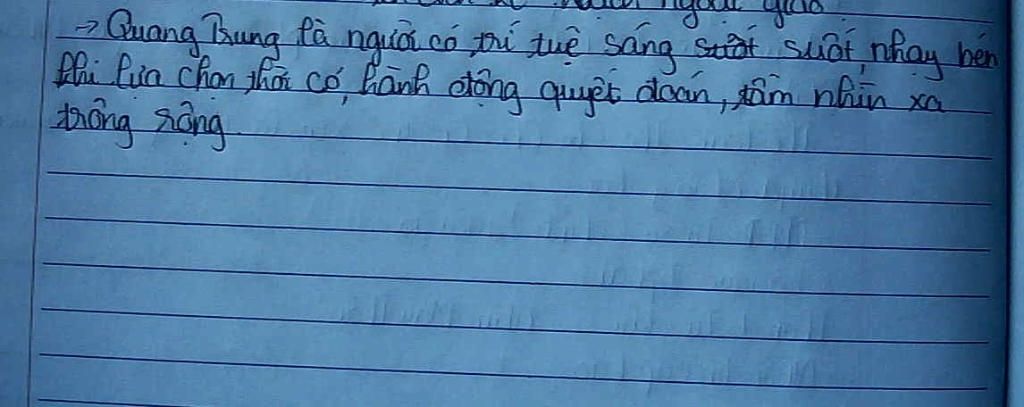 ngoại giao
→ Quang Trung là người có trí tuệ sáng suốt suốt, nhạy bén
khi lựa chọn thời cơ, hành động quyết đoán, tầm nhìn xa
trông rộng